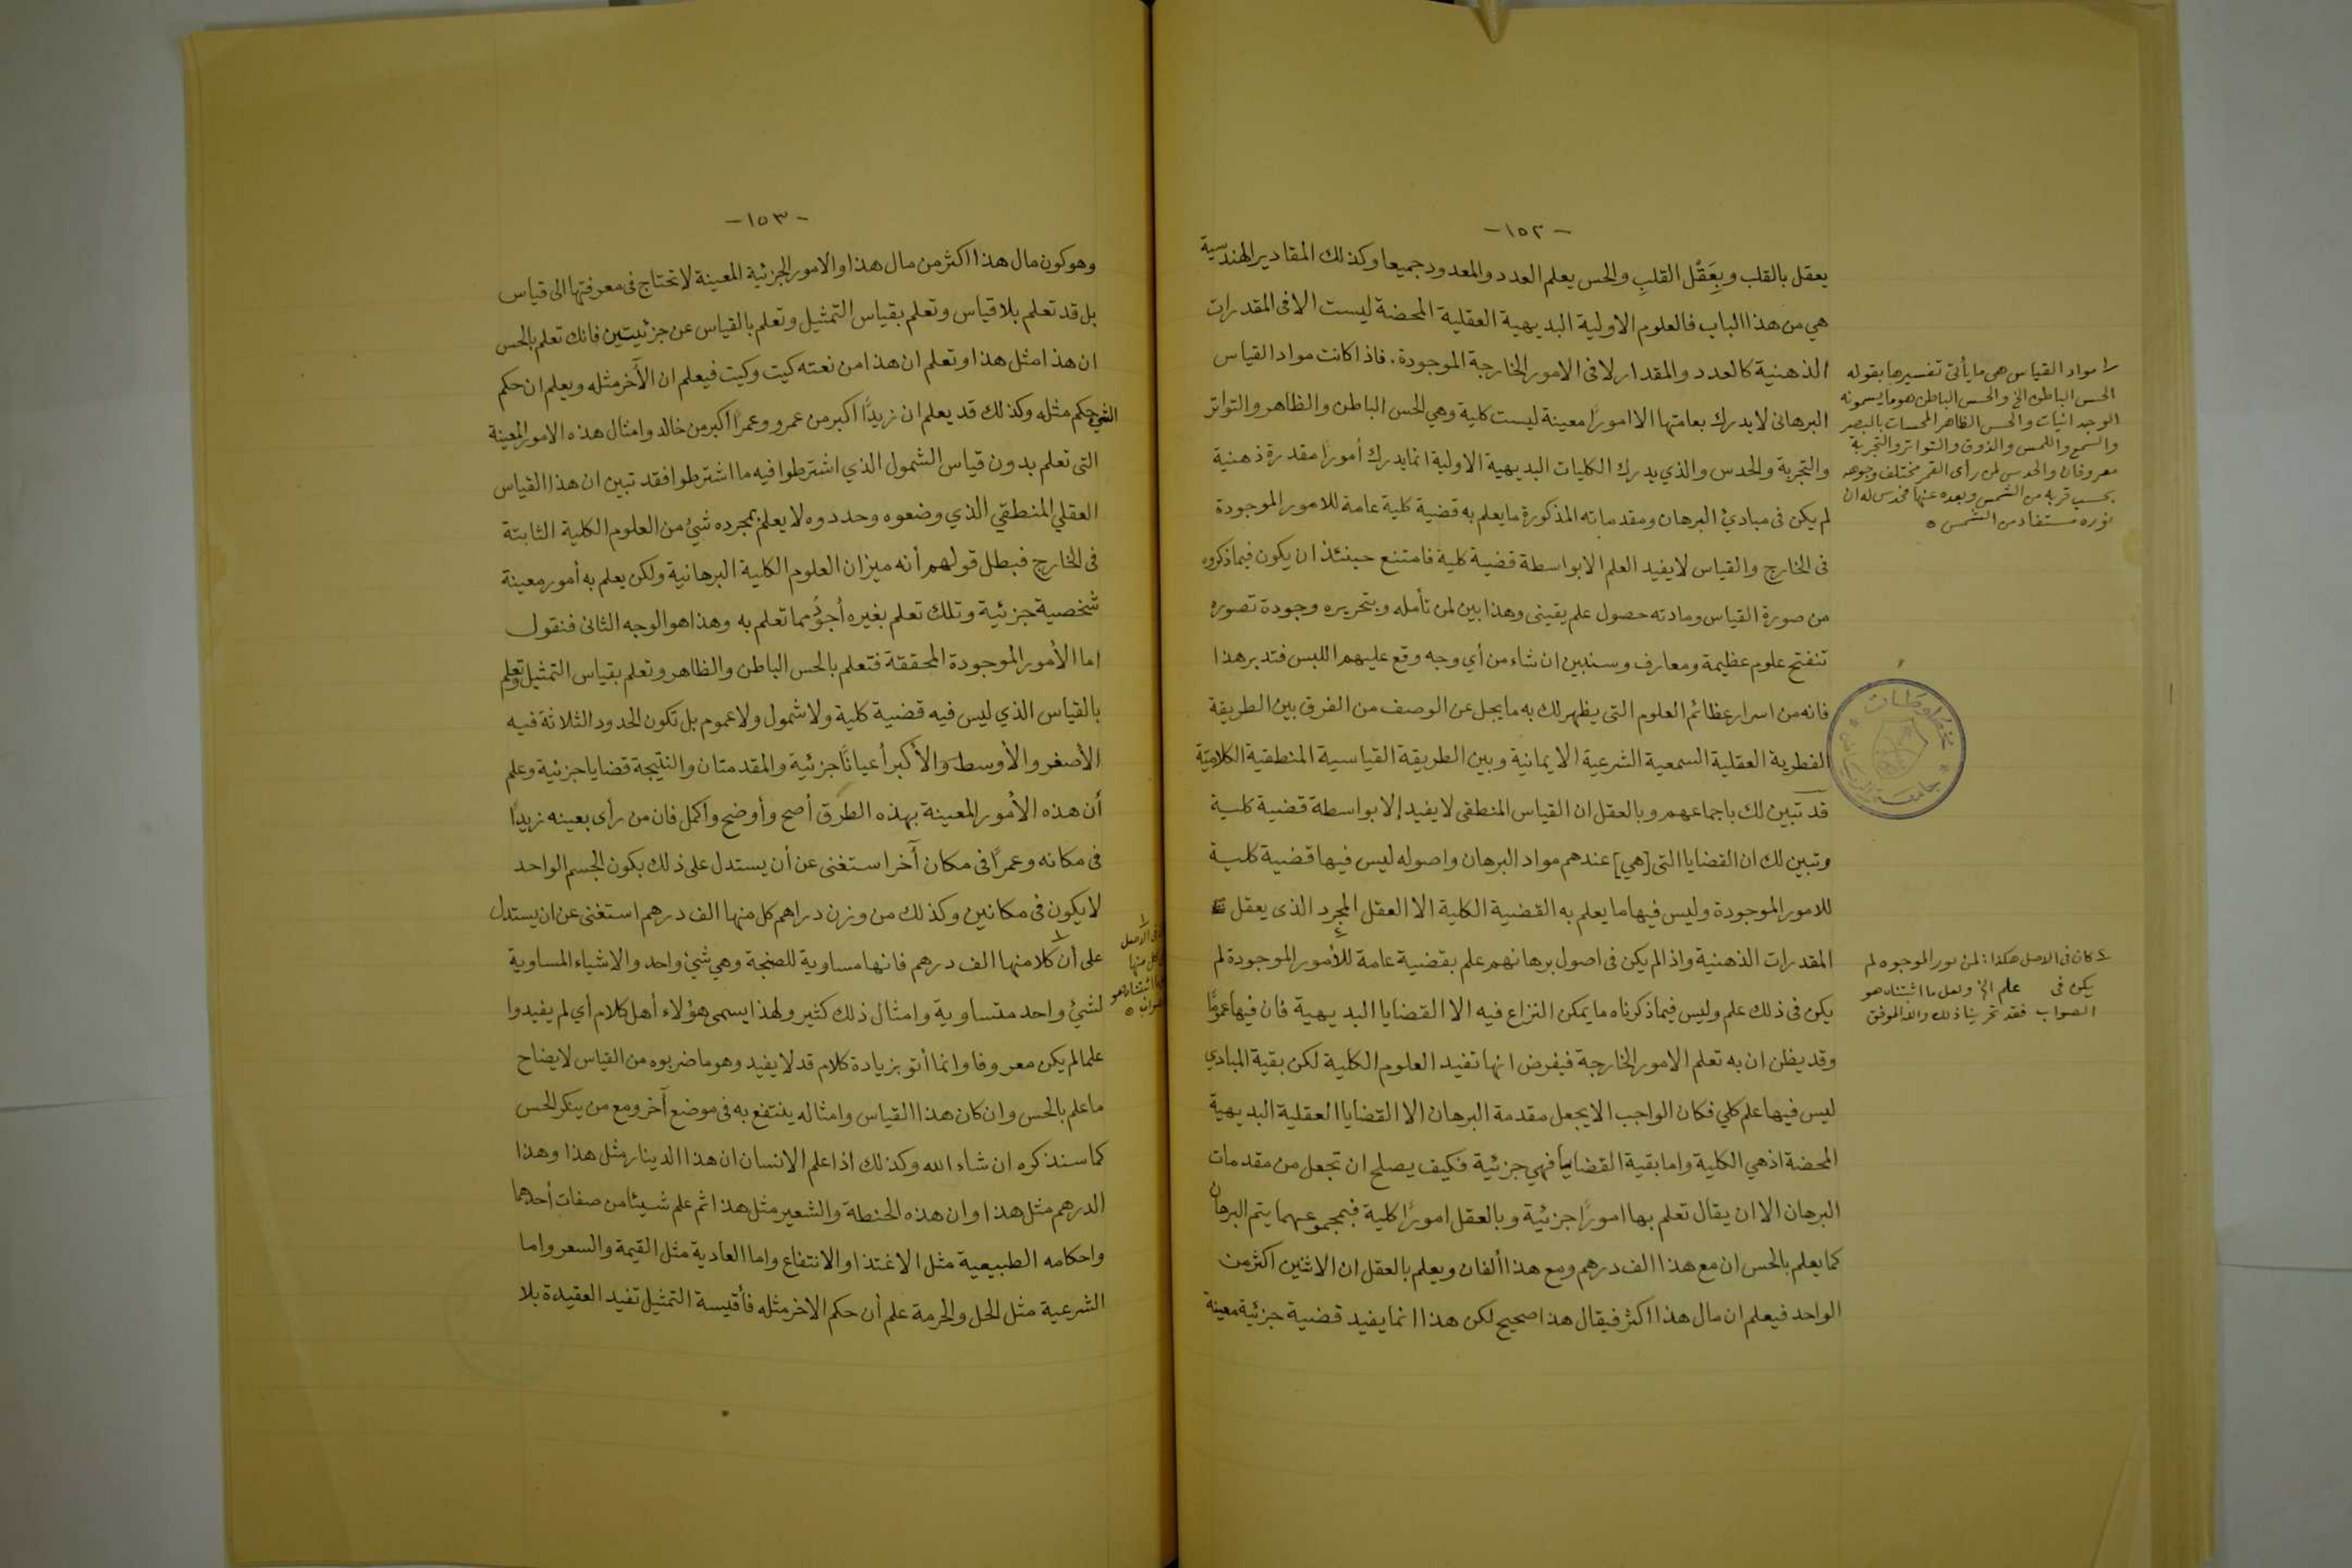 -١٥٢-
يعقل بالقلب وبِعَقْل القلبِ والحس يعلم العدد والمعدود جميعا وكذلك المقادير الهندسية
هي من هذا الباب فالعلوم الاولية البديهية العقلية المحضة ليست الا فى المقدرات
الذهنية كالعدد والمقدار لا فى الامور الخارجة الموجودة. فاذا كانت مواد القياس
البرهانى لا يدرك بعامتها الا امورًا معينة ليست كلية وهي الحس الباطن والظاهر والتواتر
والتجربة والحدس والذي يدرك الكليات البديهية الاولية انما يدرك أمورًا مقدرة ذهنية
لم يكن فى مبادئ البرهان ومقدماته المذكورة ما يعلم به قضية كلية عامة للامور الموجودة
فى الخارج والقياس لا يفيد العلم الا بواسطة قضية كلية فامتنع حينئذ ان يكون فيما ذكروه
من صورة القياس ومادته حصول علم يقينى وهذا بين لمن تأمله وبتحريره وجودة تصوره
تنفتح علوم عظيمة ومعارف وسنبين ان شاء من أي وجه وقع عليهم اللبس فتدبر هذا
فانه من اسرار عظائم العلوم التى يظهر لك به ما يجل عن الوصف من الفرق بين الطريقة
الفطرية العقلية السمعية الشرعية الايمانية وبين الطريقة القياسية المنطقية الكلاميّة
قد تبين لك باجماعهم وبالعقل ان القياس المنطقى لا يفيد إلا بواسطة قضية كلية
وتبين لك ان القضايا التى [هي] عندهم مواد البرهان واصوله ليس فيها قضية كلية
للامور الموجودة وليس فيها ما يعلم به القضية الكلية الا العقل المجرد الذى يعقل
المقدرات الذهنية واذا لم يكن فى اصول برهانهم علم بقضية عامة للأمور الموجودة لم
يكن فى ذلك علم وليس فيما ذكرناه ما يمكن النزاع فيه الا القضايا البديهية فان فيها عمومًا
وقد يظن ان به تعلم الامور الخارجة فيفرض انها تفيد العلوم الكلية لكن بقية المبادي
ليس فيها علم كلي فكان الواجب الا يجعل مقدمة البرهان الا القضايا العقلية البديهية
المحضة اذ هي الكلية واما بقية القضايا فهي جزئية فكيف يصلح ان تجعل من مقدمات
البرهان الا ان يقال تعلم بها امورًا جزئية وبالعقل امورًا كلية فبمجموعهما يتم البرهان
كما يعلم بالحس ان مع هذا الف درهم ومع هذا ألفان ويعلم بالعقل ان الاثنين اكثر من
الواحد فيعلم ان مال هذا اكثر فيقال هذا صحيح لكن هذا انما يفيد قضية جزئية معينة
١ مواد القياس هى ما يأتى تفسيرها بقوله
الحس الباطن الخ والحس الباطن هو ما يسمونه
الوجدانيات والحس الظاهر المحسات بالبصر
والسمع واللمس والذوق والتواتر والتجربة
معروفان والحدس لمن رأى القمر مختلف وجوهه
بحسب قربه من الشمس وبعده عنها فحدس له ان
نوره مستفاد من الشمس ٥
مخطوطات
جامعة
٤ كان فى الاصل هكذا: لمن نور الموجوه لم
يكن فى علم الخ ولعل ما اثبتناه هو
الصواب فقد تحرينا ذلك والله الموفق
-١٥٣-
وهو كون مال هذا اكثر من مال هذا والامور الجزئية المعينة لا تحتاج فى معرفتها الى قياس
بل قد تعلم بلا قياس وتعلم بقياس التمثيل وتعلم بالقياس عن جزئيتين فانك تعلم بالحس
ان هذا مثل هذا وتعلم ان هذا من نعته كيت وكيت فيعلم ان الآخر مثله ويعلم ان حكم
الشي حكم مثله وكذلك قد يعلم ان زيدًا اكبر من عمرو وعمرًا اكبر من خالد وامثال هذه الامور المعينة
التى تعلم بدون قياس الشمول الذي اشترطوا فيه ما اشترطوا فقد تبين ان هذا القياس
العقلي المنطقي الذي وضعوه وحددوه لا يعلم بمجرده شئ من العلوم الكلية الثابتة
فى الخارج فبطل قولهم أنه ميزان العلوم الكلية البرهانية ولكن يعلم به أمور معينة
شخصية جزئية وتلك تعلم بغيره أجودُ مما تعلم به وهذا هو الوجه الثانى فنقول
اما الأمور الموجودة المحققة فتعلم بالحس الباطن والظاهر وتعلم بقياس التمثيل وتعلم
بالقياس الذي ليس فيه قضية كلية ولا شمول ولا عموم بل تكون الحدود الثلاثة فيه
الأصغر والأوسط والأكبر أعيانًا جزئية والمقدمتان والنتيجة قضايا جزئية وعلم
أن هذه الأمور المعينة بهذه الطرق أصح وأوضح واكمل فان من رأى بعينه زيدًا
فى مكانه وعمرًا فى مكان آخر استغنى عن أن يستدل على ذلك بكون الجسم الواحد
لا يكون فى مكانين وكذلك من وزن دراهم كل منها الف درهم استغنى عن ان يستدل
على أن كلا منها الف درهم فانها مساوية للصنجة وهي شئ واحد والاشياء المساوية
لشئ واحد متساوية وامثال ذلك كثير ولهذا يسمى هؤلاء أهل كلام أي لم يفيدوا
علما لم يكن معروفا وانما أتو بزيادة كلام قد لا يفيد وهو ما ضربوه من القياس لايضاح
ما علم بالحس وان كان هذا القياس وامثاله ينتفع به فى موضع آخر ومع من ينكر الحس
كما سنذكره ان شاء الله وكذلك اذا علم الانسان ان هذا الدينار مثل هذا وهذا
الدرهم مثل هذا وان هذه الحنطة والشعير مثل هذا ثم علم شيئا من صفات أحدهما
واحكامه الطبيعية مثل الاغتذا والانتفاع واما العادية مثل القيمة والسعر واما
الشرعية مثل الحل والحرمة علم أن حكم الاخر مثله فأقيسة التمثيل تفيد العقيدة بلا
١
فى الاصل
كل منها
ما اثبتناه هو
الصواب ٥